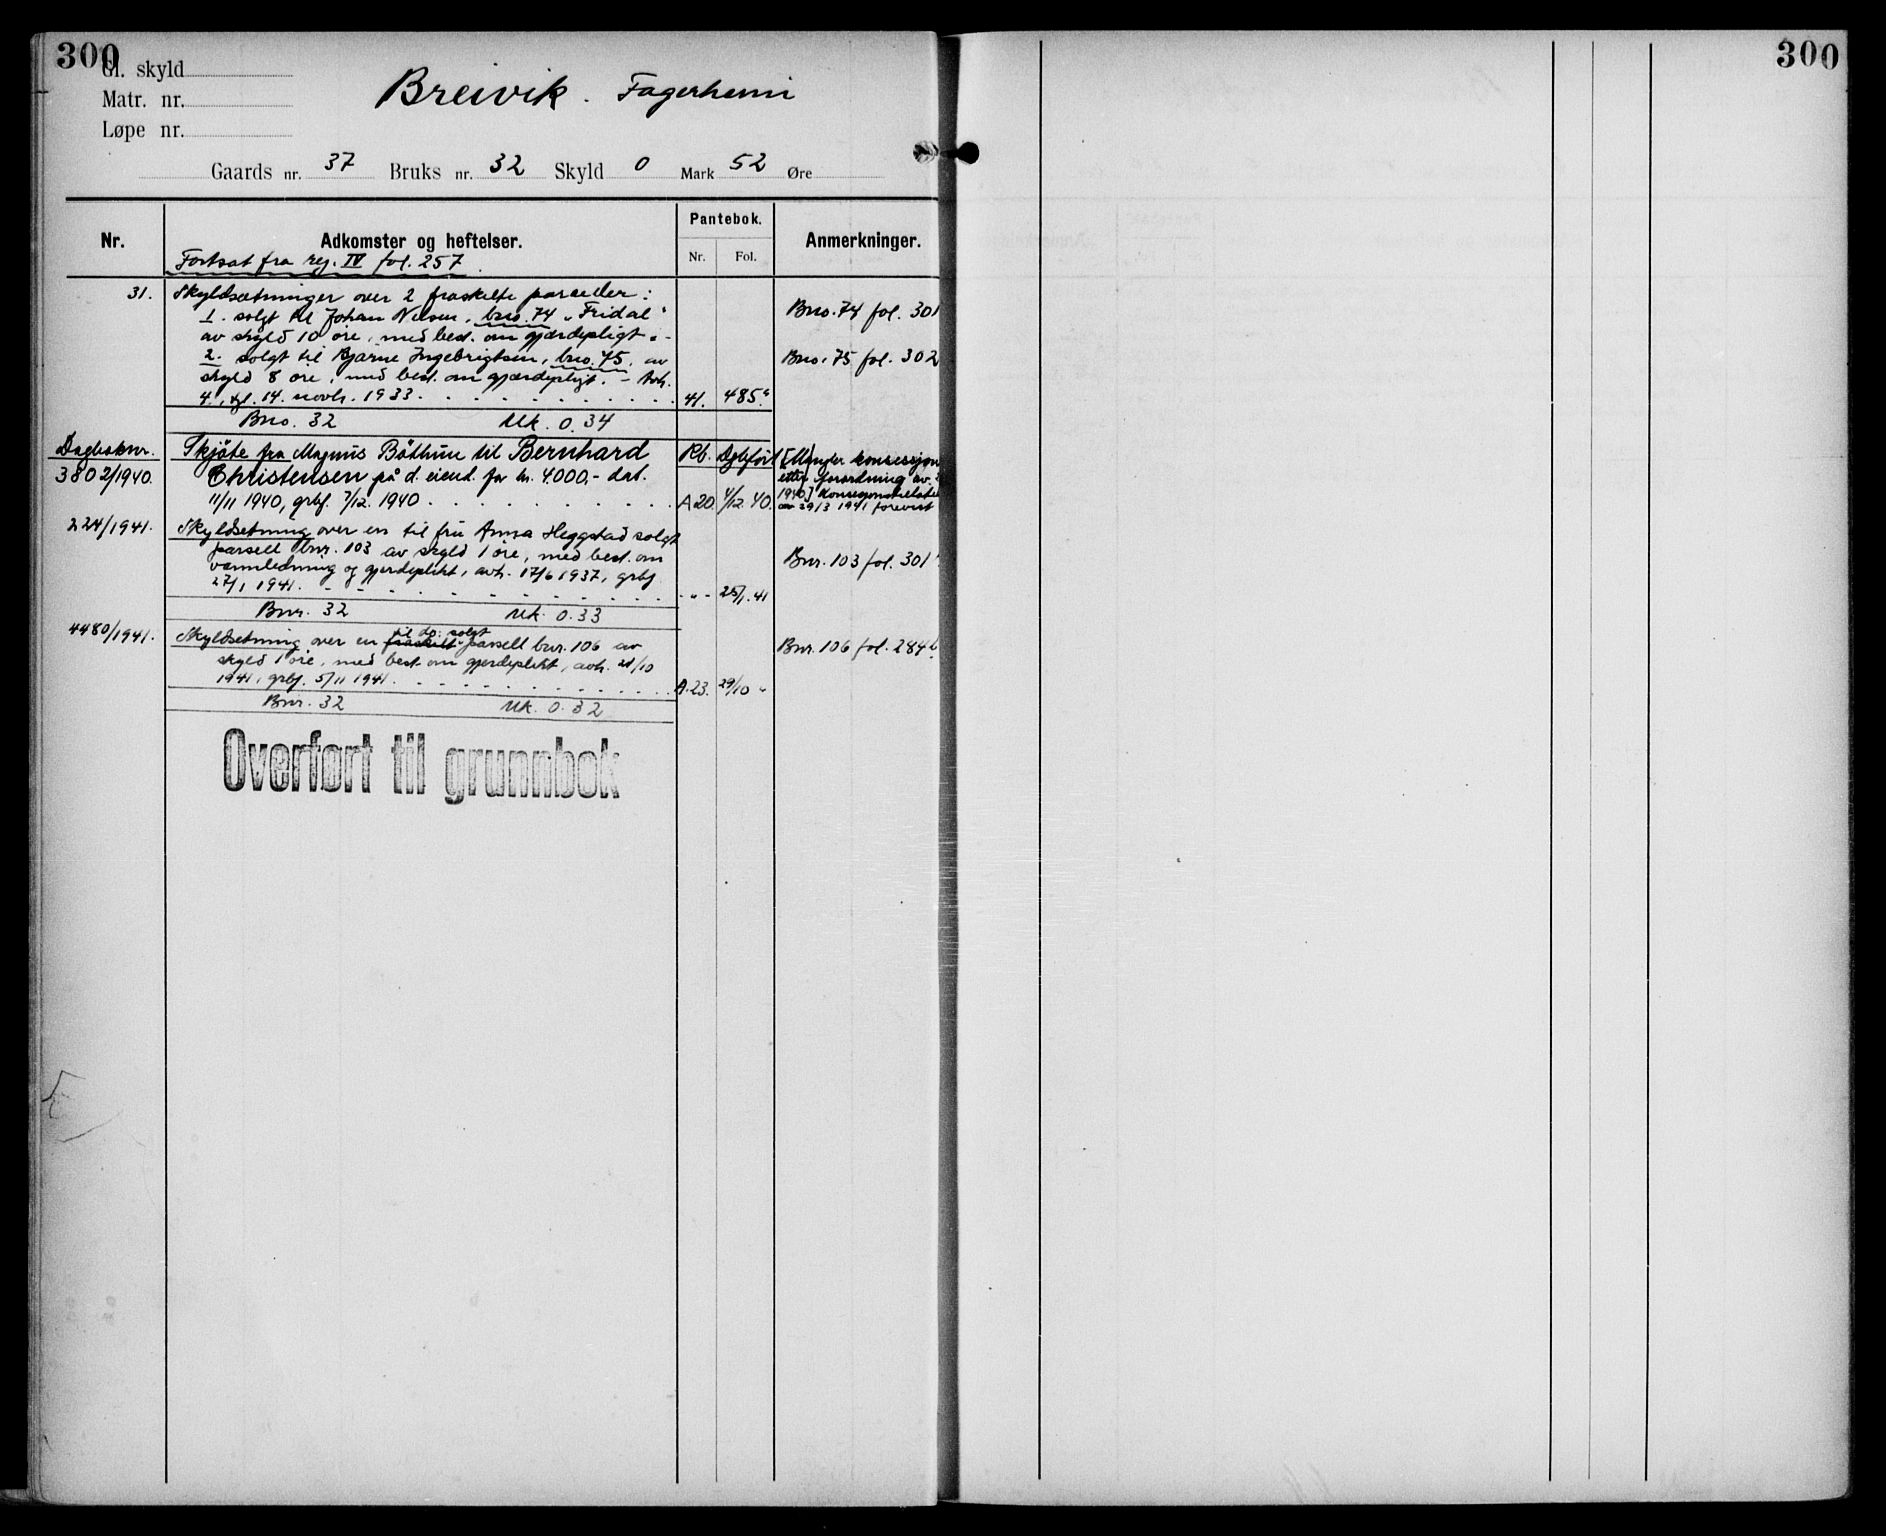 300
300
Gl. skyld
Matr. nr.
Løpe nr.
Breivik. Fagerheim
Gaards nr. 37 Bruks nr. 32 Skyld 0 Mark 52 Øre
Nr. Adkomster og heftelser. Pantebok. Nr. Fol. Anmerkninger.
Fortsat fra reg. IV fol. 257.
31. Skyldsætninger over 2 fraskilte parceller:
1. solgt til Johan Nilsen, bno. 74 "Fridal" Bno. 74 fol. 301
av skyld 10 øre, med best. om gjærdepligt. -
2. solgt til Bjarne Ingebrigtsen, bno. 75, av Bno. 75 fol. 302
skyld 8 øre, med best. om gjærdepligt. - Avh.
4., tgl. 14. novbr. 1933. 41. 485.
Bno. 32 Mk. 0.34
Dagboknr. Skjöte fra Magnus Böthun til Bernhard Pb. Dgbført [Mangler konsesjon
3802/1940. Christensen på d. eiend. for kr. 4.000.- dat. etter forordning av
11/11 1940, grbf. 7/12. 1940 A 20. 4/12 40. 1940] Konsesjon
av 29/3 1941 forevist
224/1941. Skyldsetning over en til fru Anna Heggstad solgt
parsell bnr. 103 av skyld 1 öre, med best. om Bnr. 103 fol. 301
vannledning og gjerdeplikt, avh. 17/6 1937, grbf.
27/1 1941. - " - 25/1. 41
Bnr. 32 Mk. 0.33
4480/1941. Skyldsetning over en fraskilt til do. solgt parsell bnr. 106 av Bnr. 106 fol. 284 b
skyld 1 öre, med best. om gjerdeplikt, avh. 21/10
1941, grbf. 5/11 1941. A.23. 29/10 "
Bnr. 32 Mk. 0.32
Overført til grunnbok